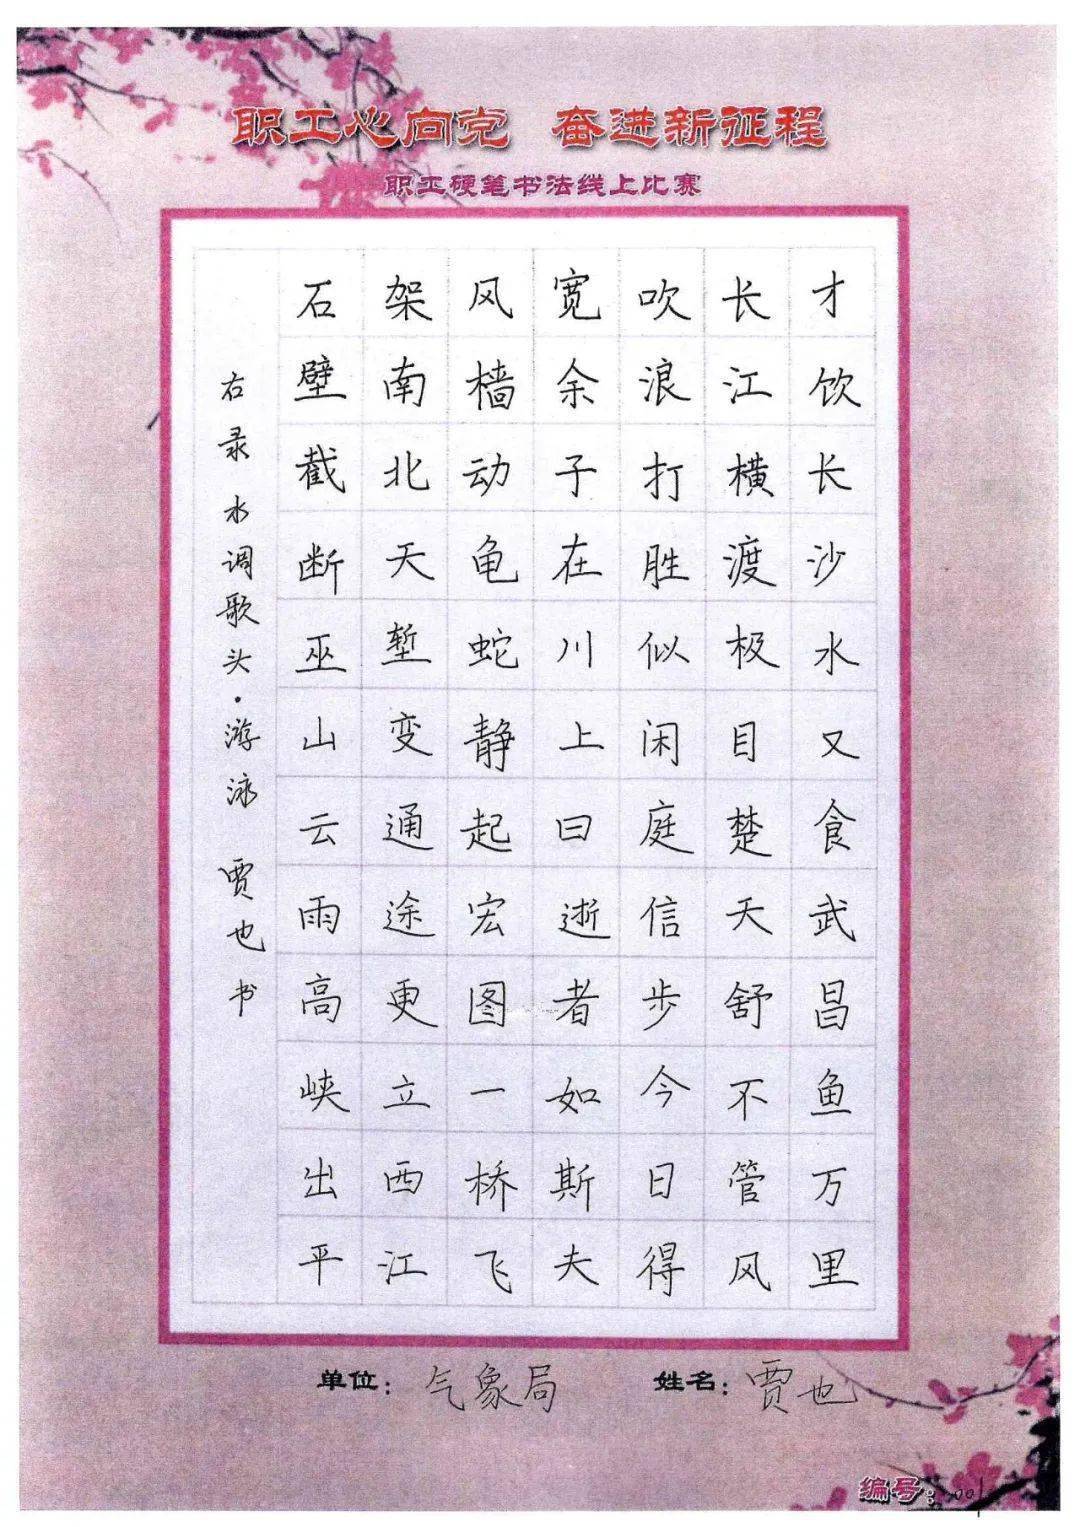 职工心向党 奋进新征程
职工硬笔书法线上比赛
才饮长沙水又食武昌鱼万里
长江横渡极目楚天舒不管风
吹浪打胜似闲庭信步今日得
宽余子在川上曰逝者如斯夫
风樯动龟蛇静起宏图一桥飞
架南北天堑变通途更立西江
石壁截断巫山云雨高峡出平
右录水调歌头·游泳 贾也书
单位：气象局 姓名：贾也
编号：001